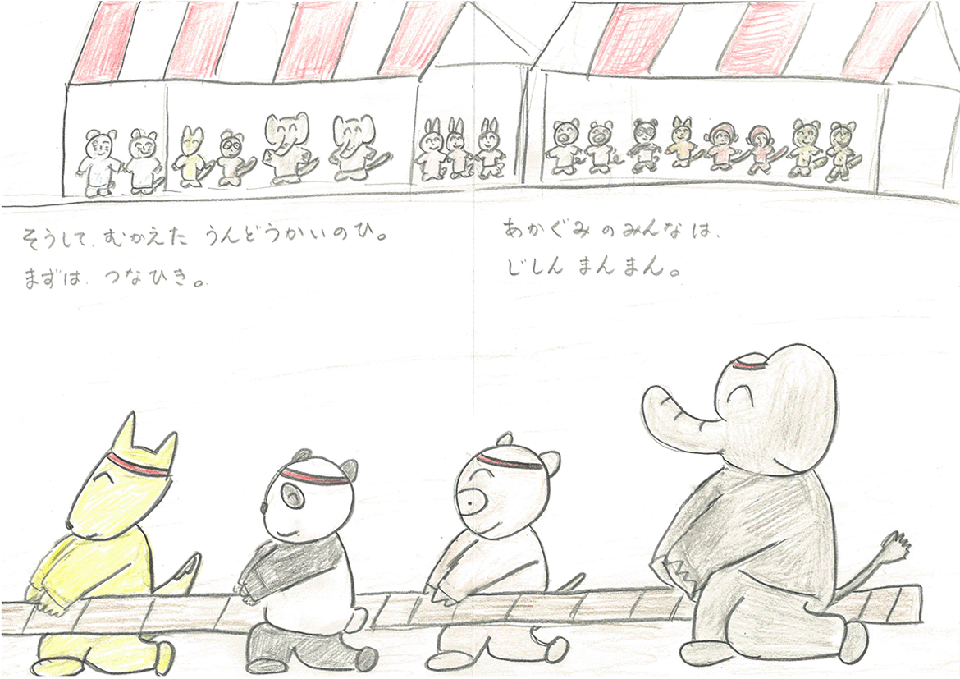 そうして、むかえた うんどうかいのひ。
まずは、つなひき。
あかぐみのみんなは、
じしんまんまん。